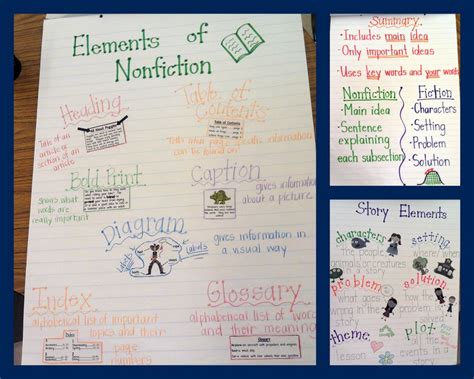 Elements of
Nonfiction
Heading
Title of an
article or
section of an
article
Table of
Contents
Table of Contents
Tells what page specific information
can be found
Bold Print
Shows what
words are
really important
Caption
gives information
about a picture
Diagram
labels
labels
gives information in
a visual way
Index
alphabetical list of important
topics and their
page
numbers
Glossary
alphabetical list of words
and their meaning
Summary
• Includes main idea
• Only important ideas
• Uses key words and your words
Nonfiction
• Main idea
• Sentence
explaining
each subsection
Fiction
• Characters
• Setting
• Problem
• Solution
Story Elements
characters
the people
animals or creatures
in a story
setting
where/when
problem
what goes
wrong in
the story
solution
how the
is fixed
theme
lesson
plot
the
events in a
story